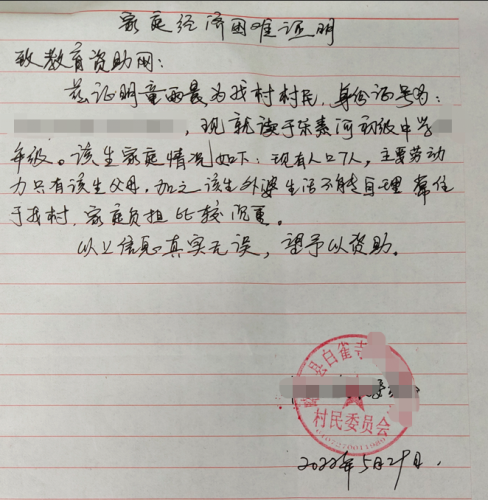 家庭经济困难证明
致教育资助网：
兹证明童西晨为我村村民，身份证号为：
，现就读于朱寨河初级中学
年级。该生家庭情况如下：现有人口7人，主要劳动
力只有该生父母，加之该生外婆生活不能自理 常住
于我村，家庭负担比较沉重。
以上信息真实无误，望予以资助。
县白雀寺
村民委员会
2022年5月29日.